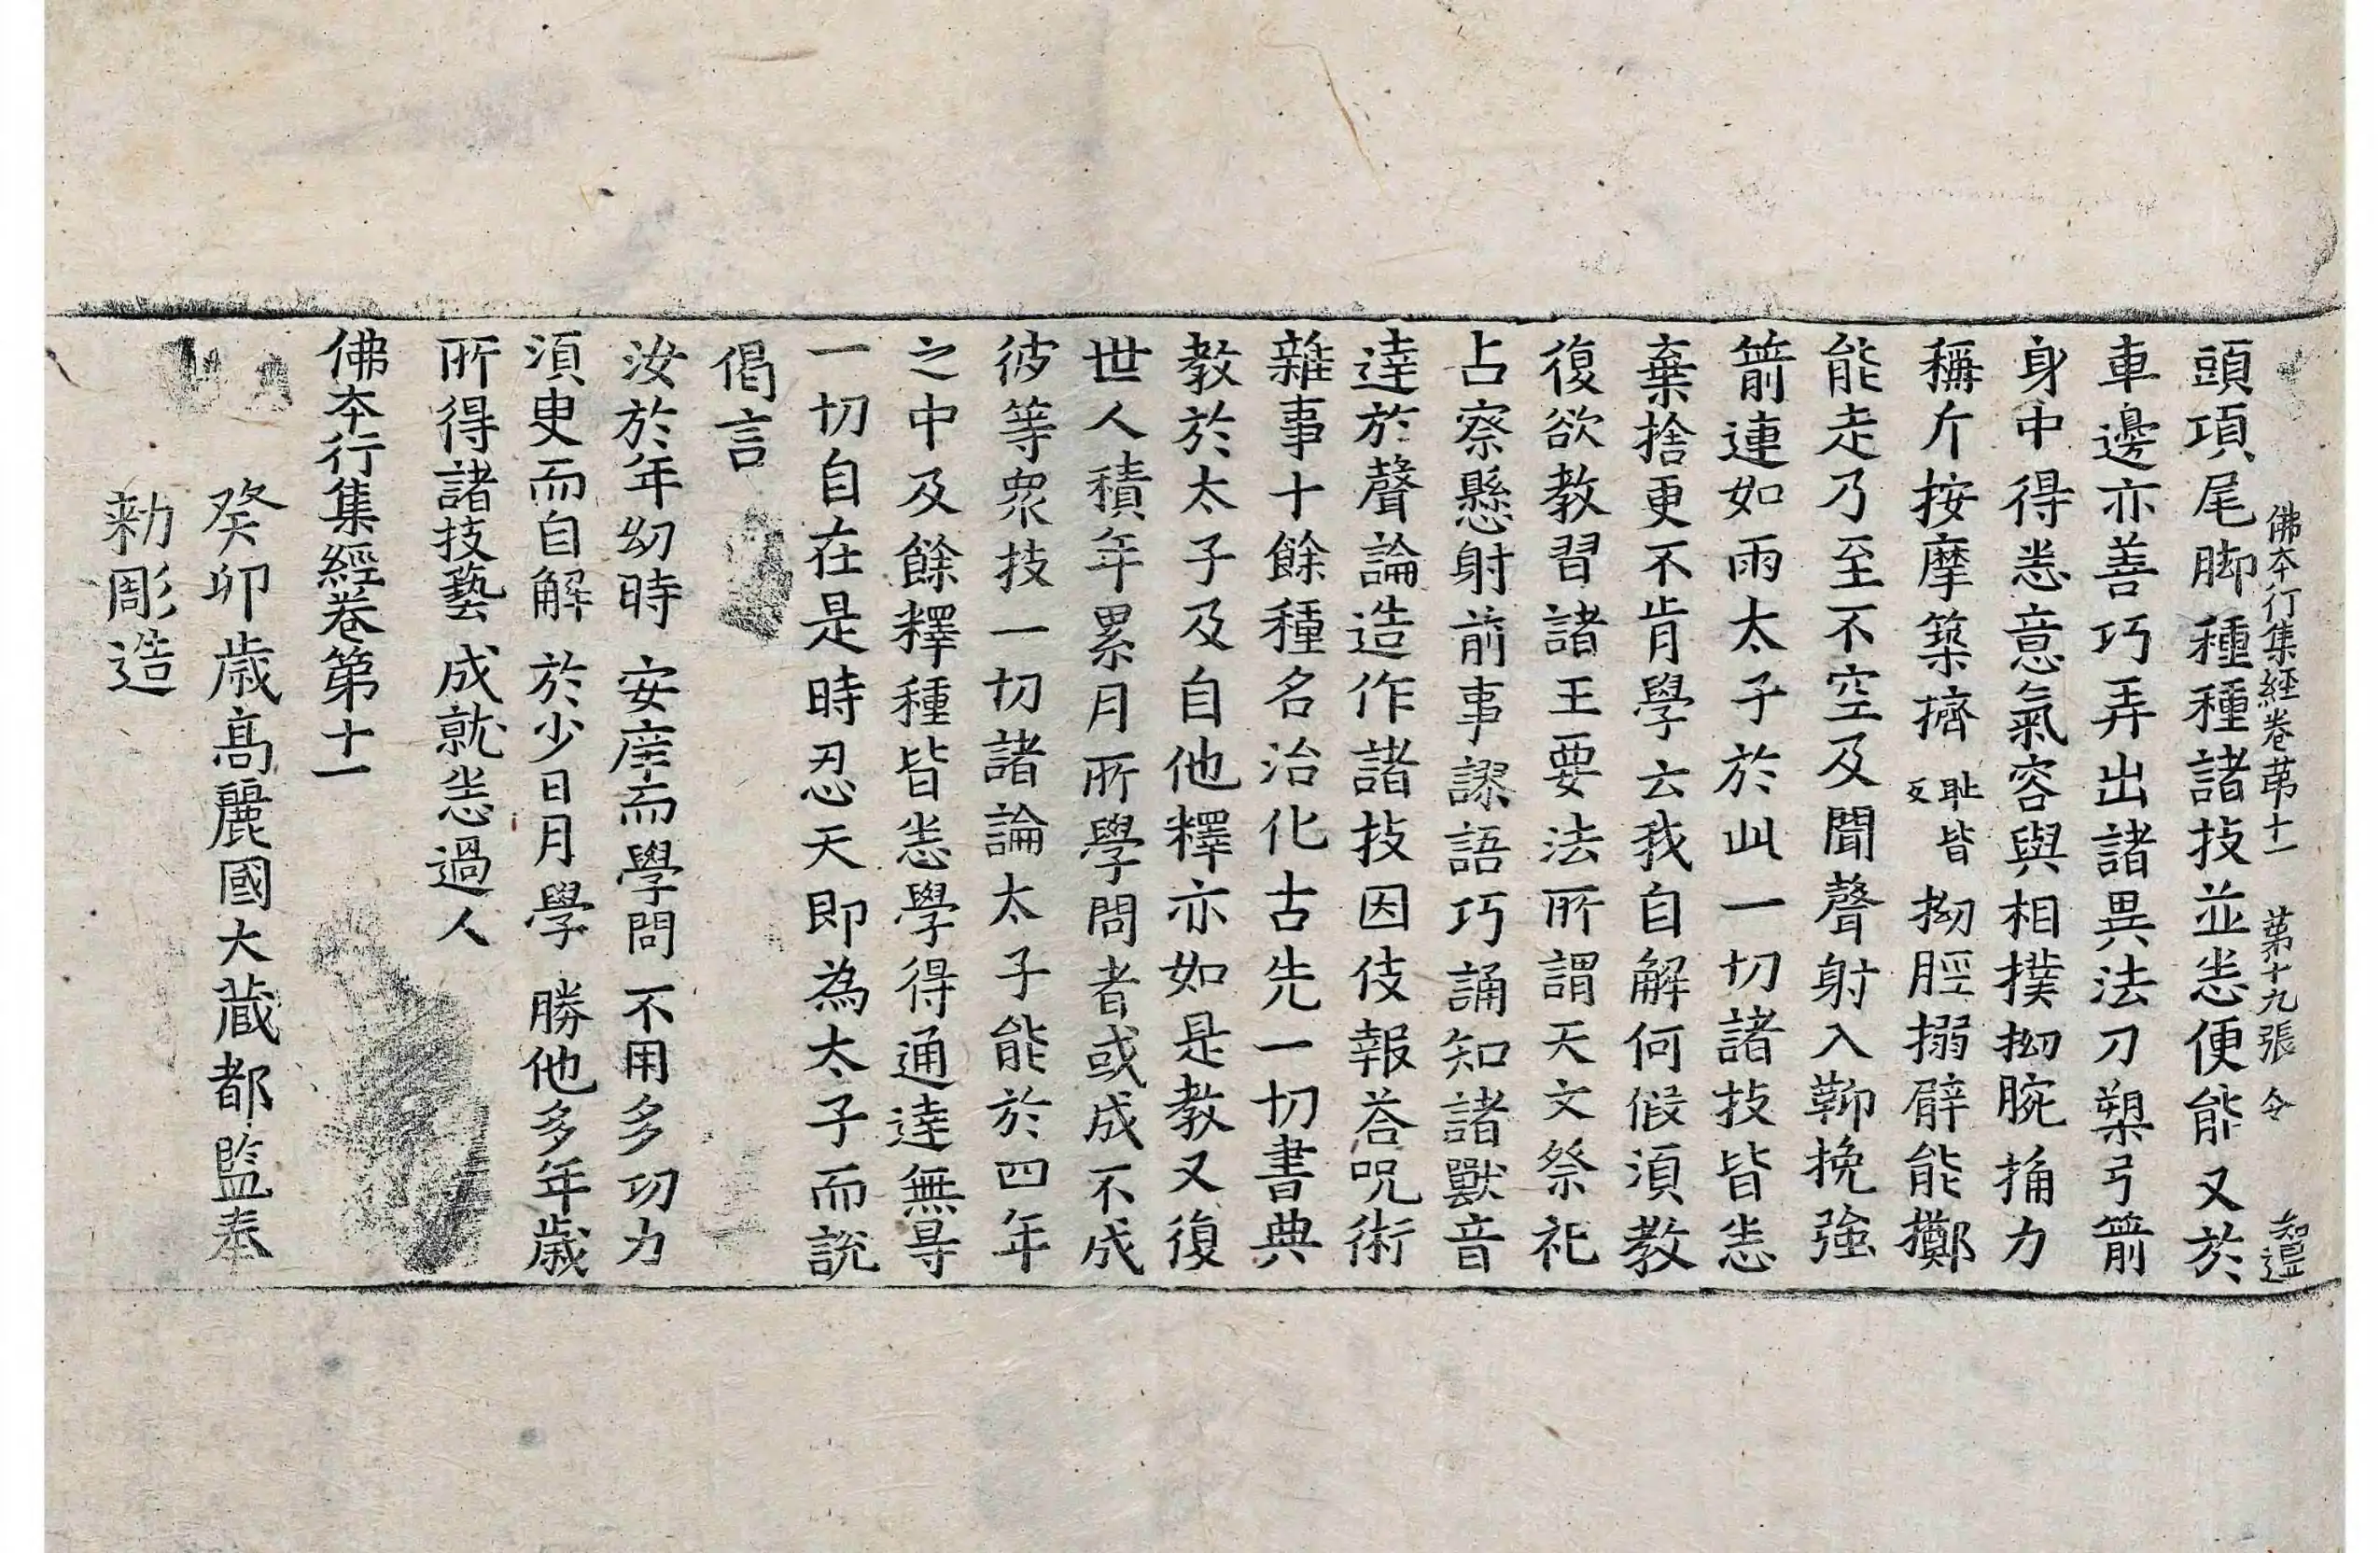 佛本行集經卷苐十一 苐十九張 令
頭項尾脚種種諸技並悉便能又於
車邊亦善巧弄出諸異法刀槊弓箭
身中得悉意氣容與相撲拗腕捔力
稱斤按摩築擠恥皆反拗脛搦臂能擲
能走乃至不空及聞聲射入鞆挽強
箭連如雨太子於此一切諸技皆悉
棄捨更不肯學云我自解何假湏教
復欲教習諸王要法所謂天文祭祀
占察懸射前事謬語巧誦知諸獸音
達於聲論造作諸技因伎報荅呪術
雜事十餘種名治化古先一切書典
教於太子及自他釋亦如是教又復
世人積年累月所學問者或成不成
彼等衆技一切諸論太子能於四年
之中及餘釋種皆悉學得通達無㝵
一切自在是時忍天即為太子而說
偈言
汝於年幼時 安庠而學問 不用多功力
湏臾而自解 於少日月學 勝他多年歲
所得諸技藝 成就悉過人
佛本行集經卷第十一
癸卯歲高麗國大藏都監奉
勑彫造